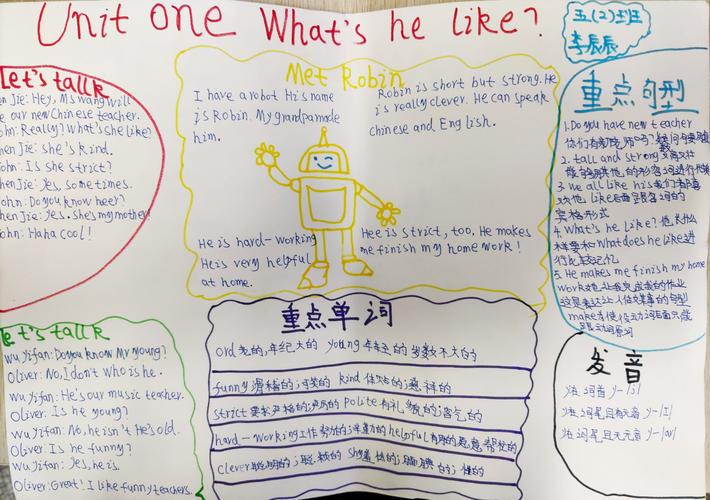 Unit one What's he like?
五(2)班
李辰辰
Let's talk
en Jie: Hey, Ms wang will
e our new Chinese teacher.
ohn: Really? What's she like?
hen Jie: she's kind.
John: Is she strict?
hen Jie: Yes, some times.
John: Do you know heer?
hen Jie: Yes. she's my mother!
ohn: Haha cool!
Met Robin
I have a robot His name
is Robin. My grandpa made
him.
Robin is short but strong. He
is really clever. He can speak
chinese and English.
He is hard-working
He is very helpful
at home.
Hee is strict, too. He makes
me finish my home work!
重点句型
1. Do you have new teacher
2. tall and strong
3. we all like his
宾格形式
4. What's he like?
What does he like
5. He makes me finish my home
work
make
et's talk
wu yifan: Do you know Mr young?
Oliver: No, I don't Who is he.
wu yifan: He's our music teacher.
Oliver: Is he young?
wu yifan: No, he isn't He's old.
Oliver: Is he funny?
wu yifan: Yes, he is.
Oliver: Great! I like funny teachers.
重点单词
ord 老的,年纪大的 young 年轻的 岁数不大的
funny 滑稽的;可笑的 kind 体贴的;慈祥的
strict 要求严格的;严厉的 Polite 有礼貌的;客气的
hard-working 工作努力的;辛勤的 helpful 有用的;愿意帮忙的
clever 聪明的;聪颖的 shy
发音
y-
词尾且有元音 y-
词尾且无元音 y-